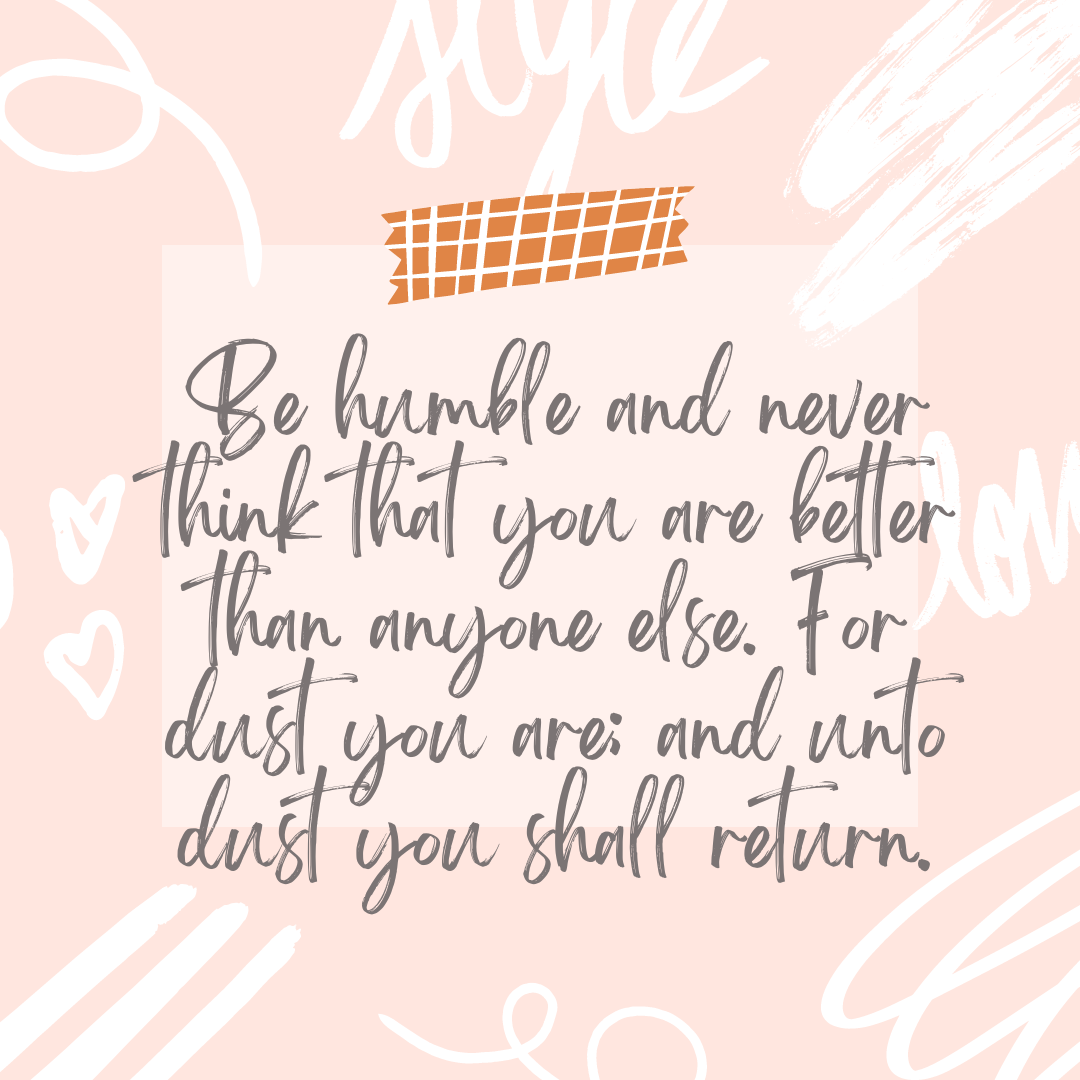 style
Be humble and never
think that you are better
than anyone else. For
dust you are; and unto
dust you shall return.